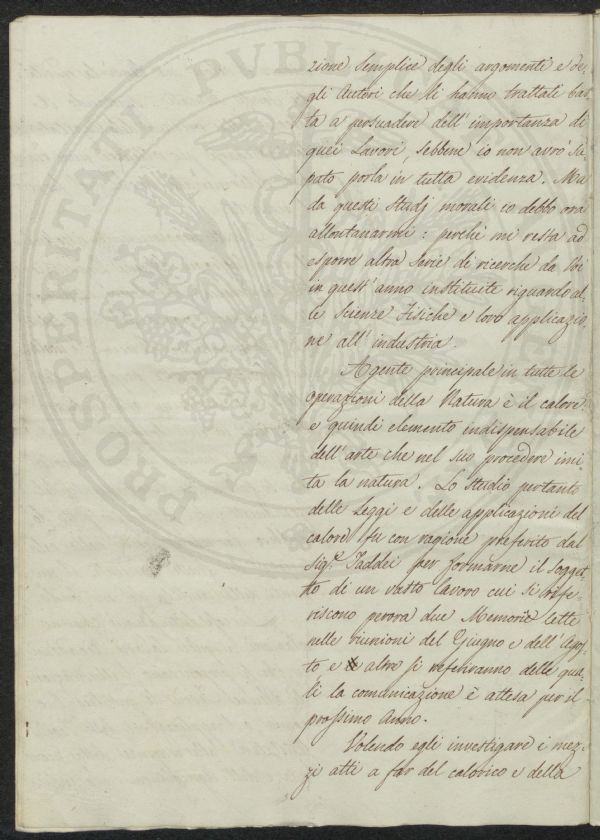 zione semplice degli argomenti e de-
gli Autori che li hanno trattati bas-
ta a persuadere dell'importanza di
quei Lavori, sebbene io non avrò sa-
puto porla in tutta evidenza. Ma
da questi Studj morali io debbo ora
allontanarmi: perchè mi resta ad
esporre altra Serie di ricerche da Voi
in quest'anno instituite riguardo al-
le Scienze Fisiche e loro applicazio-
ne all'industria.
Agente principale in tutte le
operazioni della Natura è il calore
e quindi elemento indispensabile
dell'arte che nel suo procedere imi-
ta la natura. Lo Studio pertanto
delle Leggi e delle applicazioni del
calore fu con ragione preferito dal
Sig.r Taddei per formarne il Sogget-
to di un vasto lavoro cui si rife-
riscono perora due Memorie lette
nelle riunioni del Giugno e dell'Agos-
to e altre si referiranno delle qua-
li la comunicazione è attesa per il
prossimo Anno.
Volendo egli investigare i mez-
zi atti a far del calorico e della
PROSPERITATI PVBL